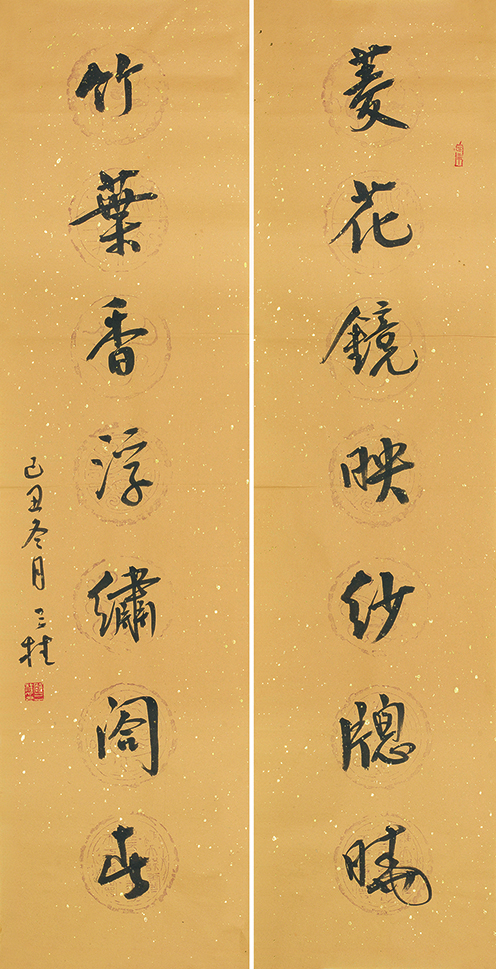 菱花鏡映紗牕曉
竹葉香浮繡閣春
己丑冬月三桂